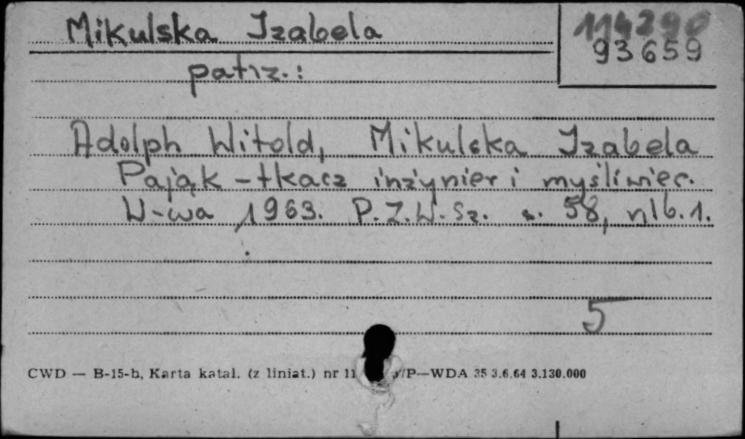 Mikulska Izabela
114290
93659
patrz.:
Adolph Witold, Mikulska Izabela
Pająk - tkacz inżynier i myśliwiec.
W-wa 1963. P.Z.W.Sz. s. 58, nlb. 1.
5
CWD — B-15-b, Karta katal. (z liniat.) nr 11 /P—WDA 35 3.6.64 3.130.000